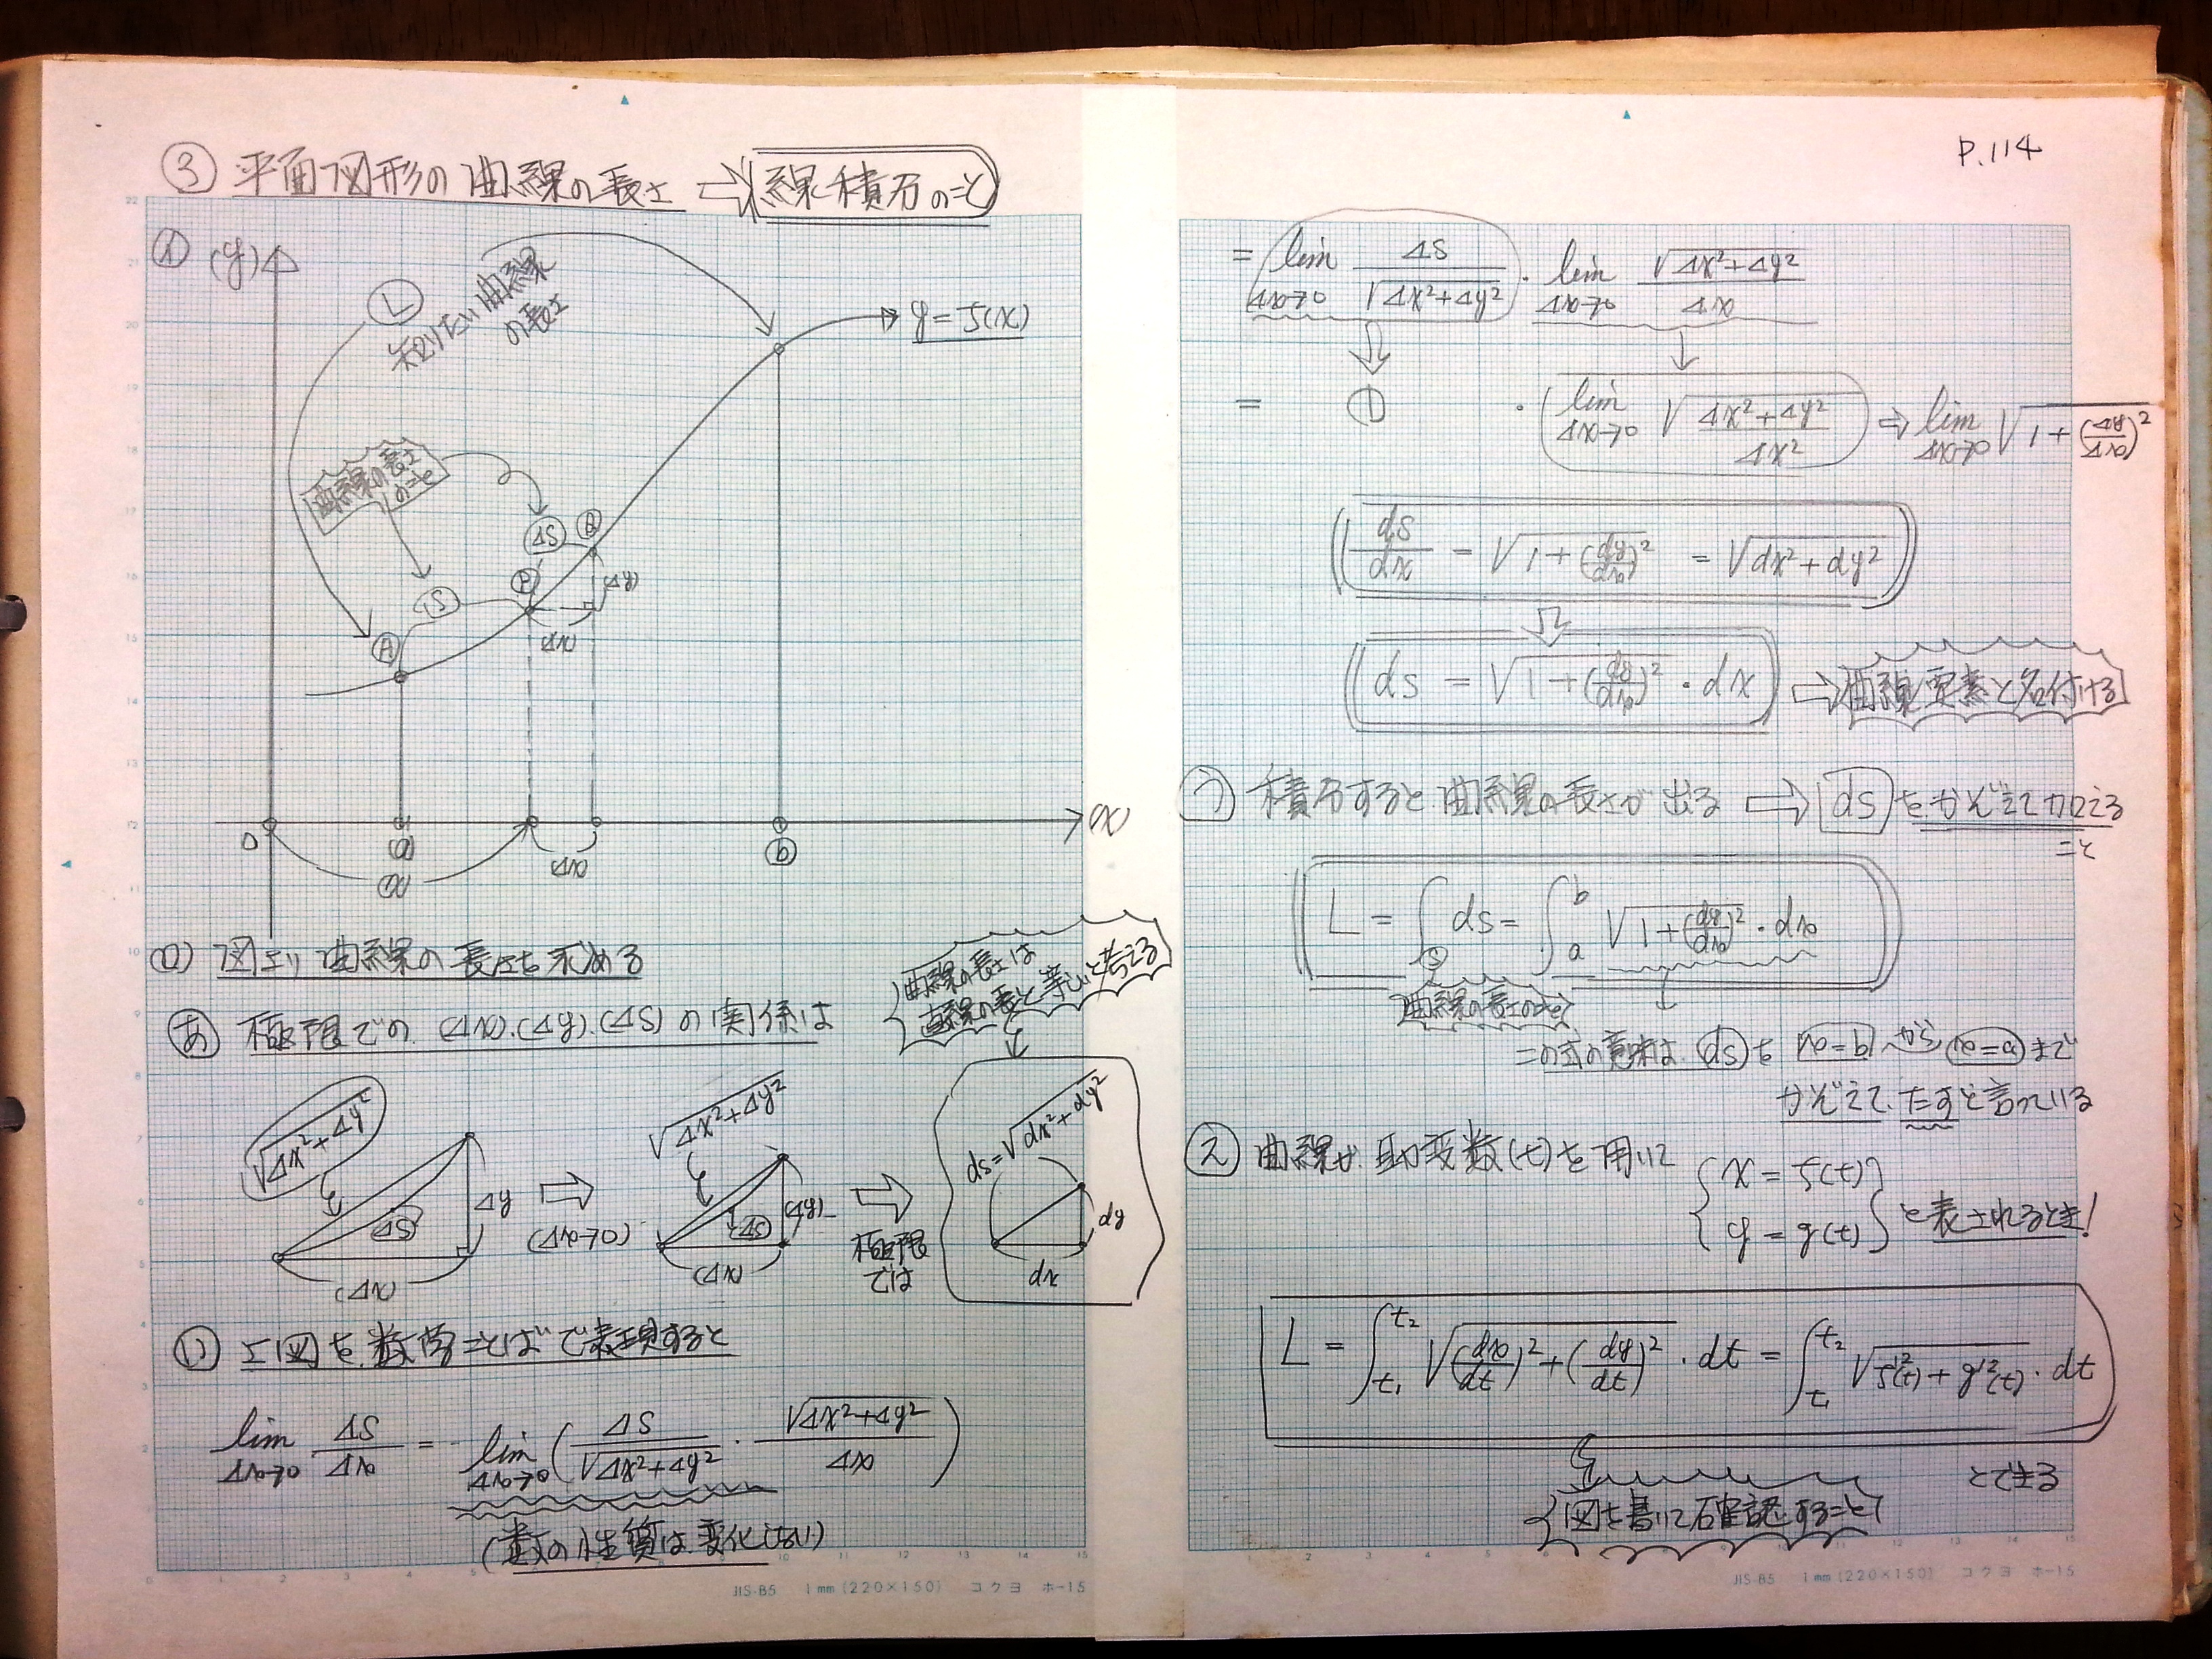 ③ 平面図形の曲線の長さ ⇨ 線積分のこと
P.114
(イ) (y)
L
知りたい曲線
の長さ
y=f(x)
曲線の長さ
のこと
ΔS
Q
P
(Δy)
S
(Δx)
A
0
a
(Δx)
b
x
(x)
(ロ) 図より曲線の長さを求める
曲線の長さは
直線の長と等しいと考える
あ 極限での (Δx)・(Δy)・(ΔS) の関係は
√Δx²+Δy²
ΔS
Δy
(Δx)
⇨
(Δx→0)
√Δx²+Δy²
ΔS
(Δy)
(Δx)
⇨
極限
では
ds=√dx²+dy²
dy
dx
い 上図を数学ことばで表現すると
lim Δx→0 ΔS/Δx = lim Δx→0 (ΔS/√Δx²+Δy² ・ √Δx²+Δy²/Δx)
(数の性質は変化しない)
= lim Δx→0 ΔS/√Δx²+Δy² ・ lim Δx→0 √Δx²+Δy²/Δx
= 1 ・ lim Δx→0 √Δx²+Δy²/Δx² ⇨ lim Δx→0 √1+(Δy/Δx)²
ds/dx = √1+(dy/dx)² = √dx²+dy²
ds = √1+(dy/dx)² ・dx ⇨ 曲線要素と名付ける
う 積分すると曲線の長さが出る ⇨ ds をかぞえて加える
こと
L = ∫S ds = ∫a b √1+(dy/dx)² ・dx
曲線の長さのこと
この式の意味は ds を x=b から x=a まで
かぞえて、たすと言っている
え 曲線が助変数(t)を用いて
{ x = f(t)
{ y = g(t) } と表されるとき!
L = ∫t₁ t₂ √(dx/dt)²+(dy/dt)² ・dt = ∫t₁ t₂ √f'²(t)+g'²(t) ・dt
とできる
図を書いて確認すること!
JIS-B5 1mm (220×150) コクヨ ホ-15
JIS-B5 1mm (220×150) コクヨ ホ-15